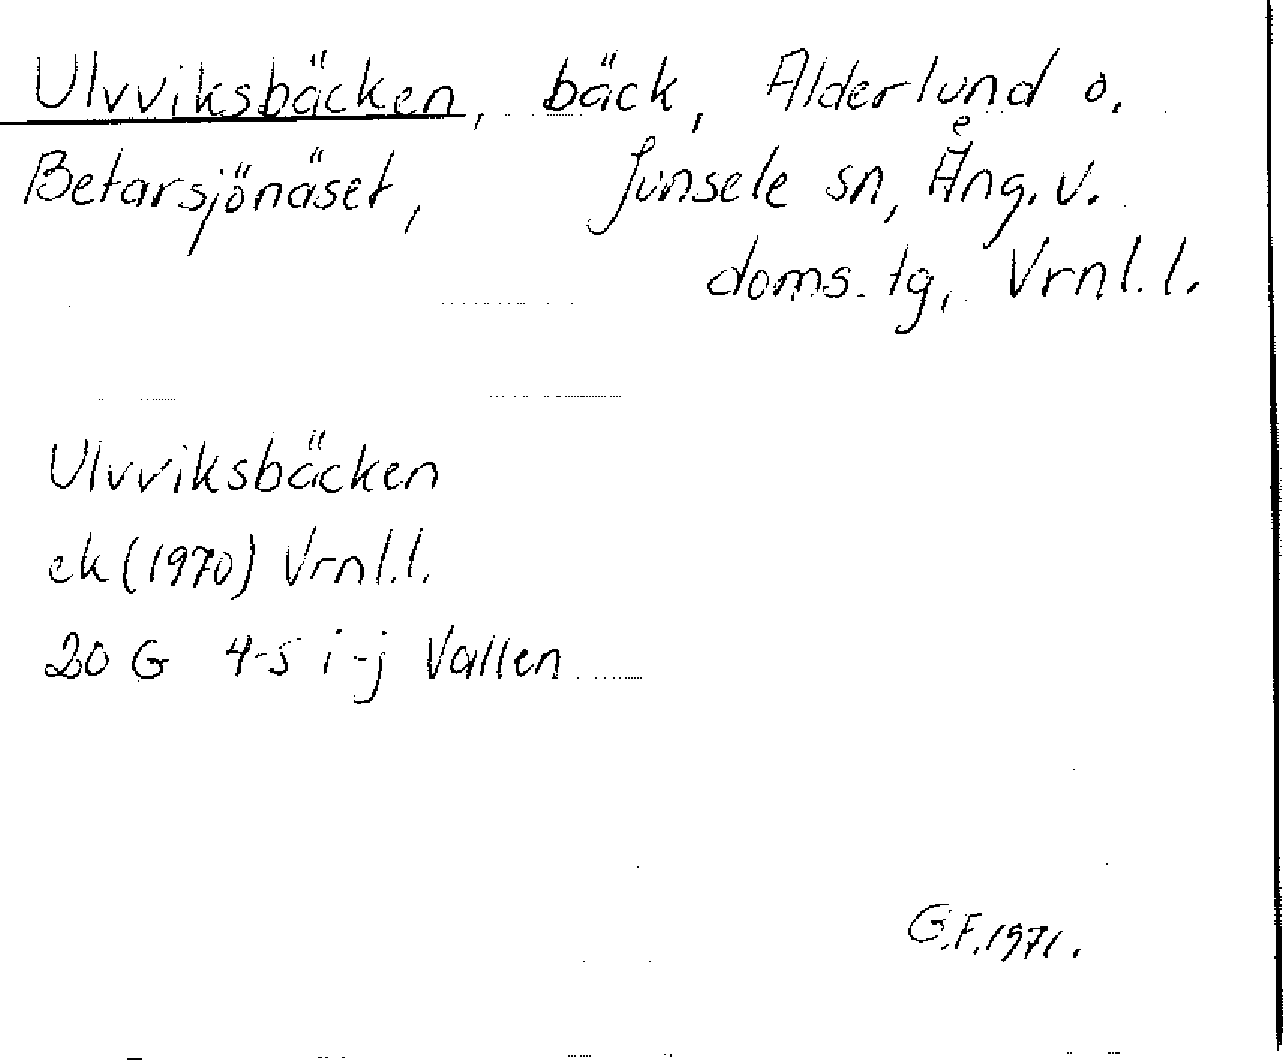 Ulvviksbäcken, bäck, Alderlund o.
Betarsjönäset, Junsele sn, Ång. v.
doms. tg, Vrnl. l.
Ulvviksbäcken
ek (1970) Vrnl. l.
20 G 4-5 i-j Vallen
G.F. 1971.